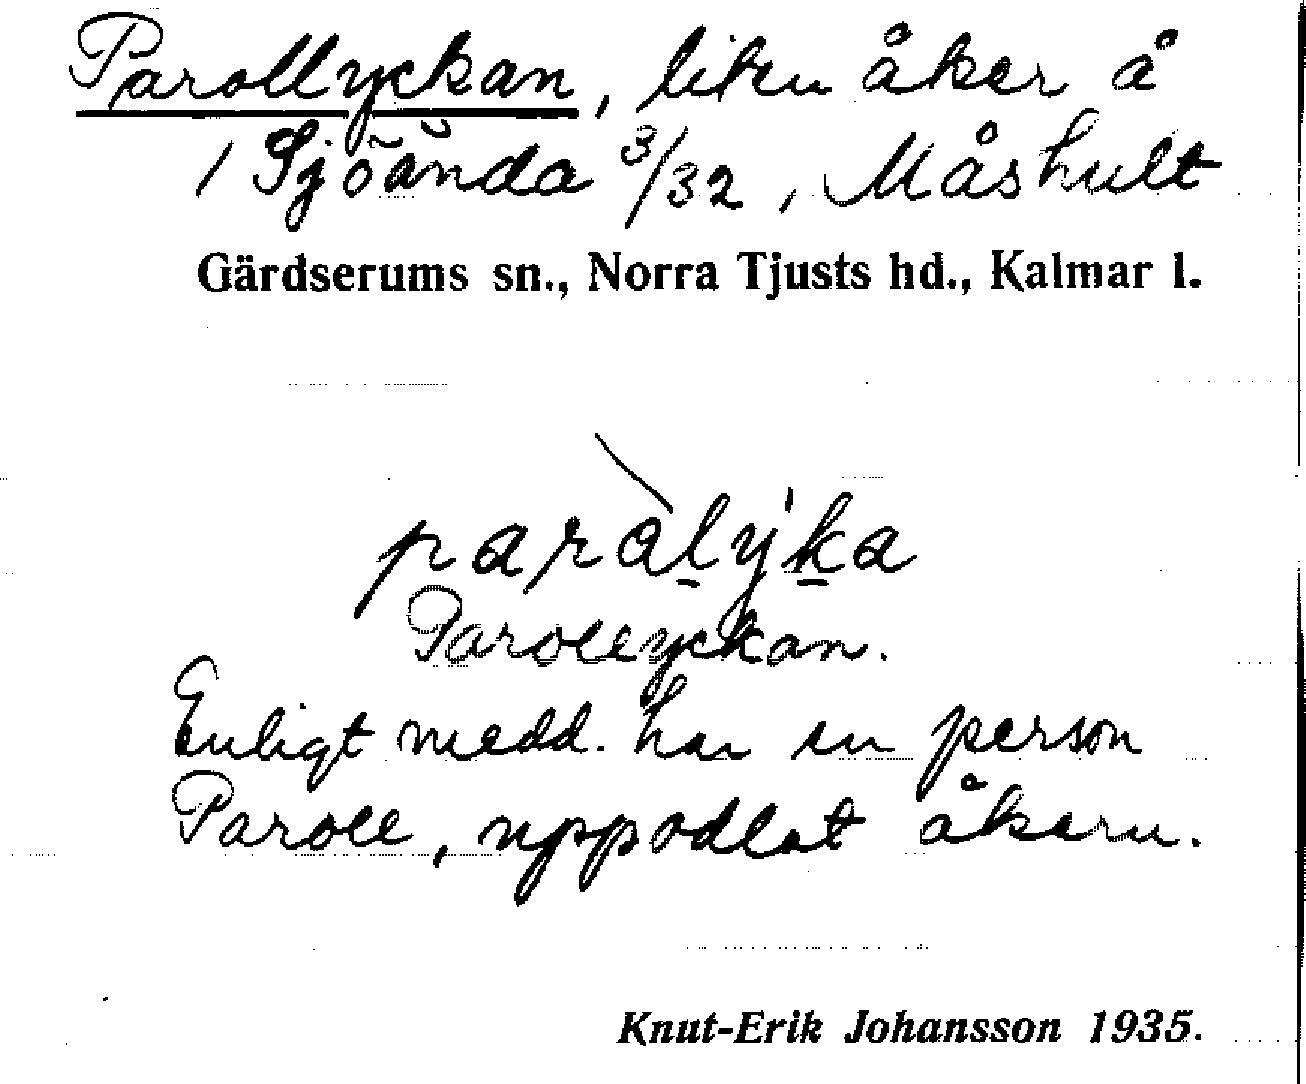 Parollyckan, liten åker å
1 Sjöända 3/32, Måshult
Gärdserums sn., Norra Tjusts hd., Kalmar l.
paràlýka
Parollyckan.
Enligt medd. har en person
Paroll, uppodlat åkern.
Knut-Erik Johansson 1935.